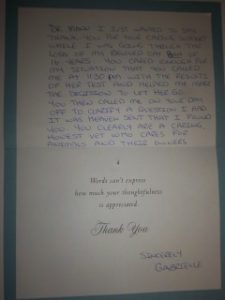 I JUST WANTED TO SAY
THANK YOU FOR YOUR CARING
WHILE I WAS GOING THROUGH THE
LOSS OF MY BELOVED CAT OF
16 YEARS. YOU CARED ENOUGH FOR
MY SITUATION THAT YOU CALLED
ME AT 11:30 PM WITH THE RESULTS
OF HER TEST AND HELPED ME MAKE
THE DECISION TO LET HER GO.
YOU THEN CALLED ME ON YOUR DAY
OFF TO CLARIFY A QUESTION I HAD
IT WAS HEAVEN SENT THAT I FOUND
YOU. YOU CLEARLY ARE A CARING,
HONEST VET WHO CARES FOR
ANIMALS AND THEIR OWNERS
Words can't express
how much your thoughtfulness
is appreciated.
Thank You
SINCERELY